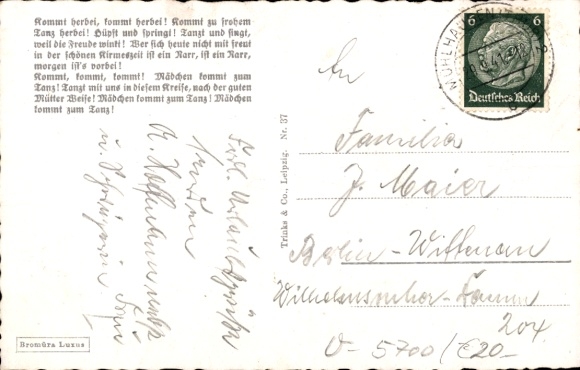 Kommt herbei, kommt herbei! Kommt zu frohem
Tanz herbei! Hüpft und springt! Tanzt und singt,
weil die Freude winkt! Wer sich heute nicht mit freut
in der schönen Kirmeszeit ist ein Narr, ist ein Narr,
morgen ist's vorbei!
Kommt, kommt, kommt! Mädchen kommt zum
Tanz! Tanzt mit uns in diesem Kreise, nach der guten
Mütter Weise! Mädchen kommt zum Tanz! Mädchen
kommt zum Tanz!
Herzl. Urlaubsgrüße
senden
R. Hoffmann
u.
Bromüra Luxus
Trinks & Co., Leipzig. Nr. 37
6 6
Deutsches Reich
MÜHLHAUSEN
An
Familie
J. Maier
Berlin-Wittenau
Wilhelmsruher-Damm
204
V- 5700/€20-